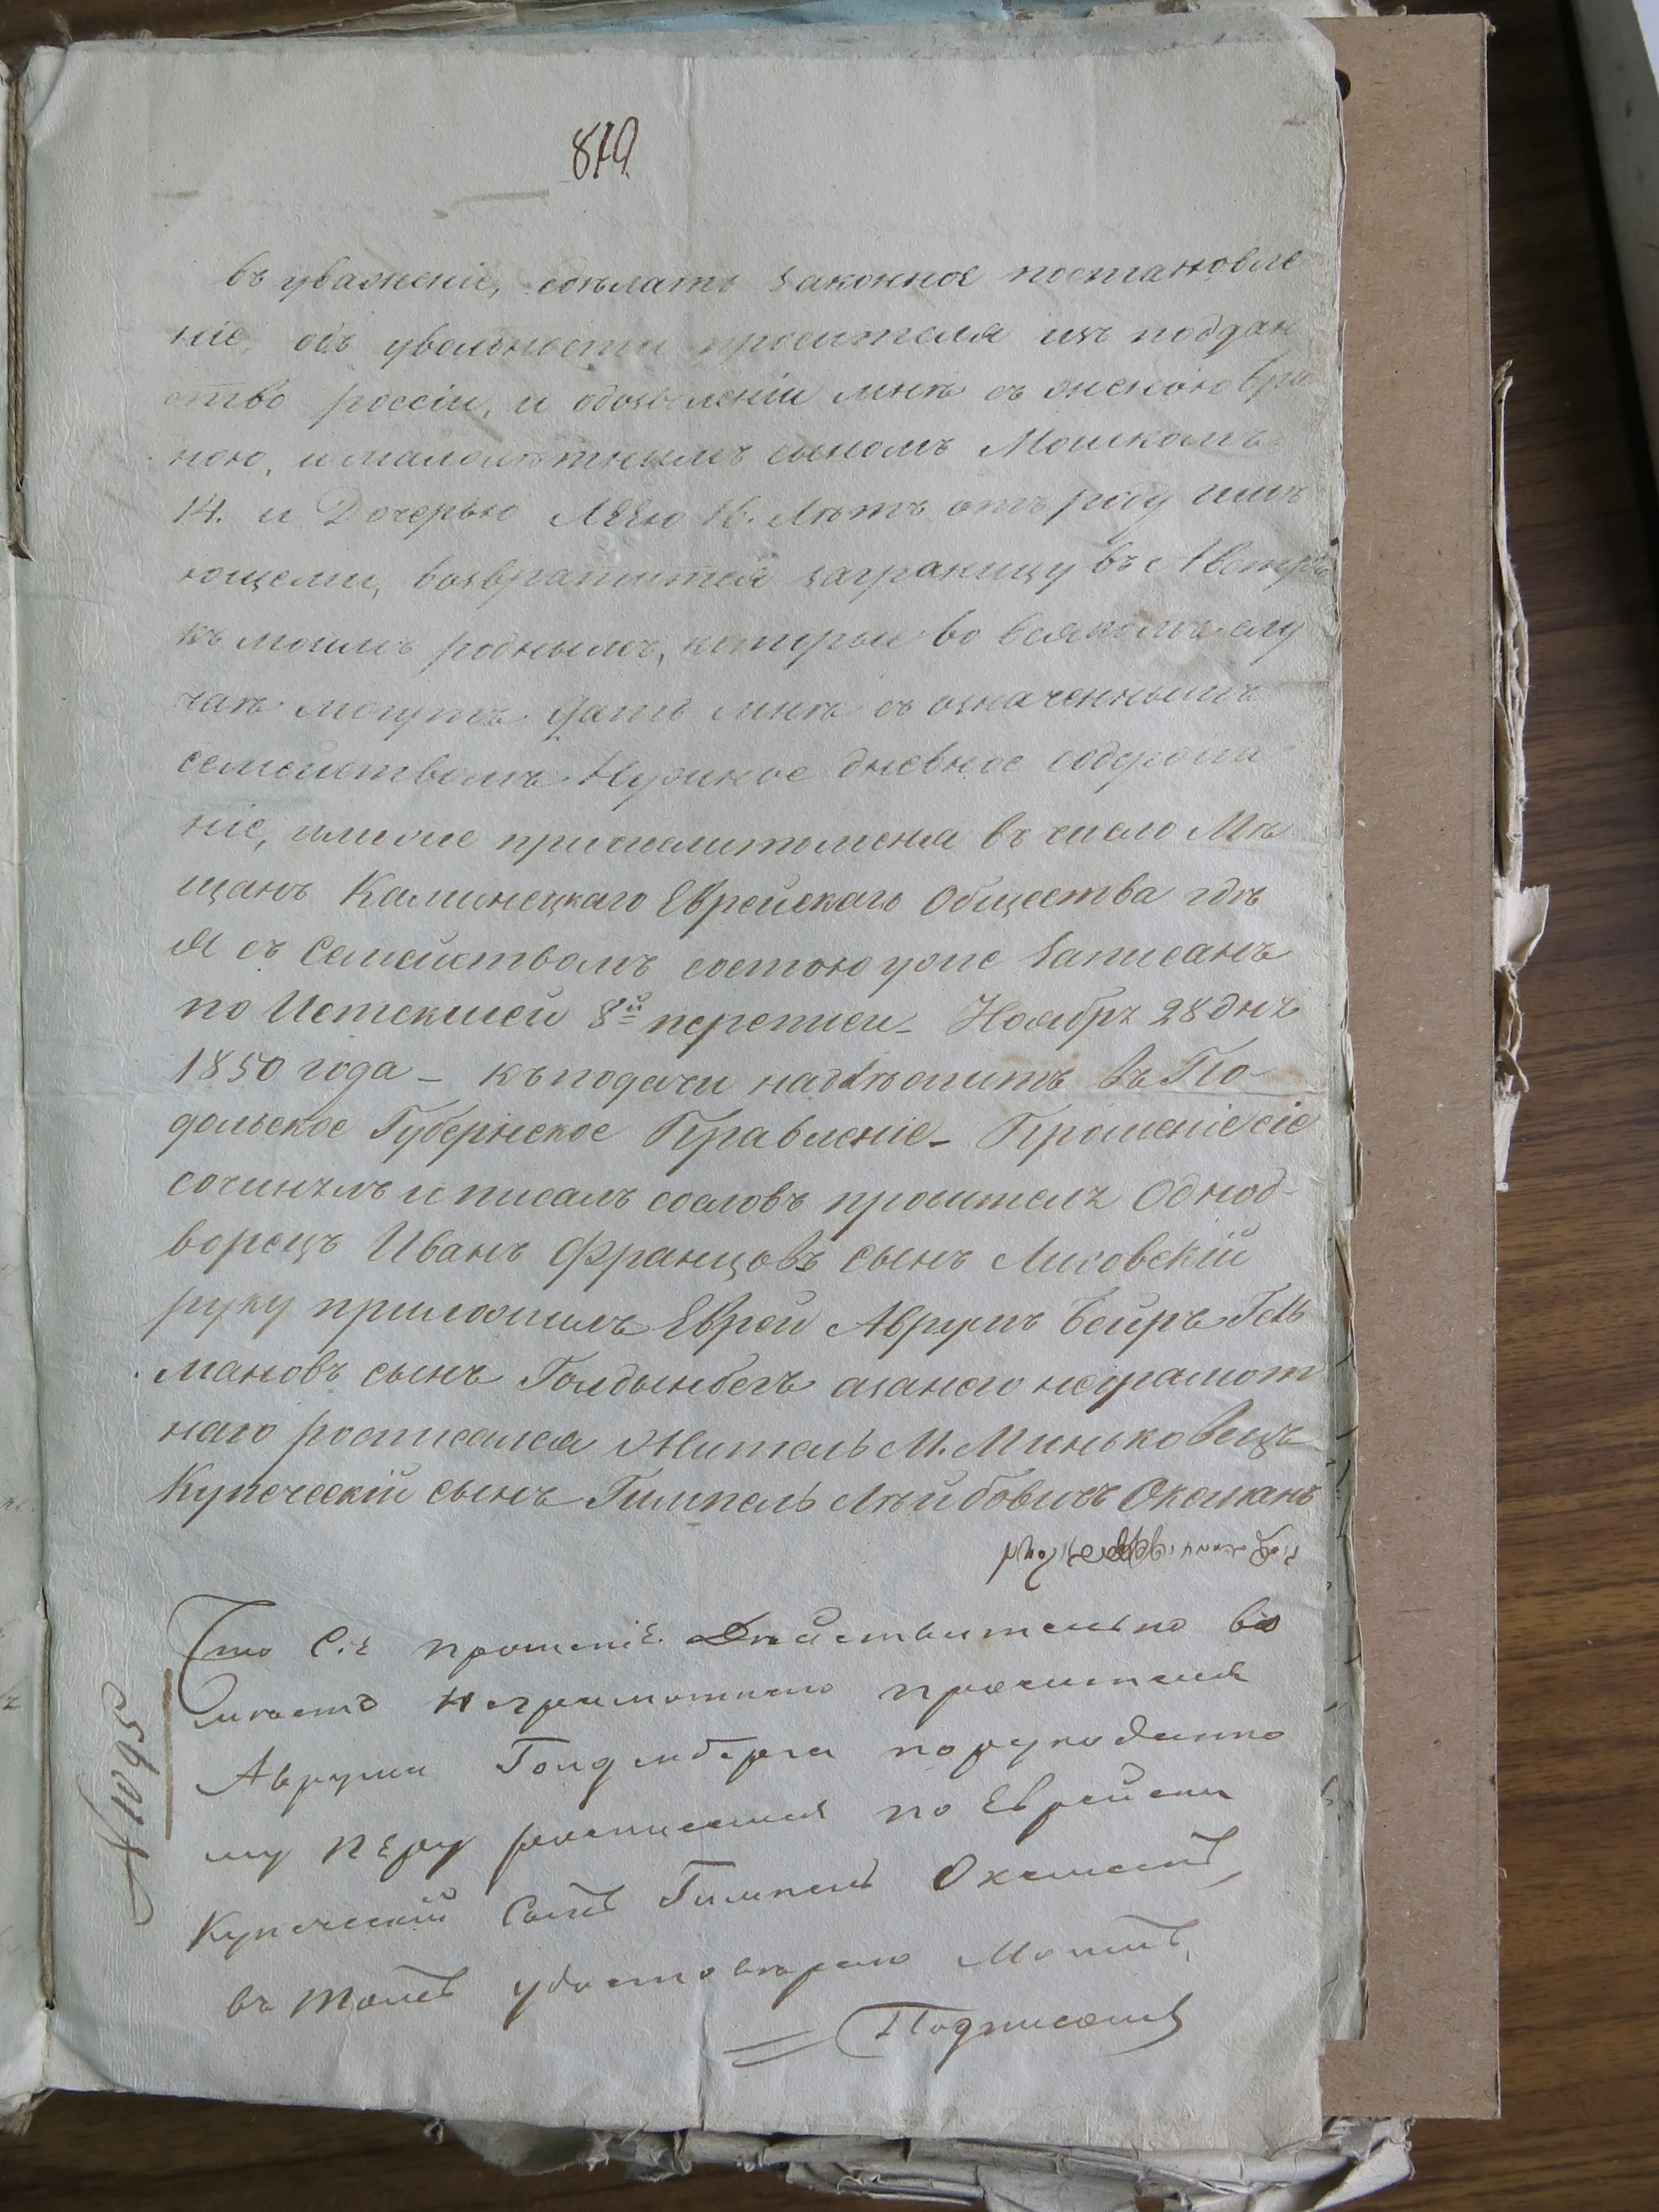 879
въ уваженіе, сдѣлать законное постановле
ніе, объ увольности просителя изъ поддан
ство россіи, и дозволеніи мнѣ съ женою Бри
ною, и малолѣтнымъ сыномъ Мошкомъ
14. и Дочерью Леею 16. Лѣтъ отъ роду имѣ
ющеми, возвратится заграницу въ Австрію
къ моимъ роднымъ, которые во всякомъ слу
чаѣ могутъ дать мнѣ съ означеннымъ
семействомъ Нужное дневное содержа
ніе, мене въ число Мѣ
щанъ Каминецкаго Еврейскаго Общества гдѣ
я съ Семействомъ состою уже Записанъ
по Истекшей 8й переписи_ Ноябрѣ 28 днѣ
1850 года – къ подачи надлѣжитъ въ По-
дольское Губернское Правленіе_ Прошеніе сіе
сочинѣлъ и писалъ сословъ просителѣ Однод-
ворецъ Иванъ Францовъ сынъ Лисовскій
руку приложилъ Еврей Аврумъ Бейръ Гель
мановъ сынъ Голдынбегъ азанего неграмот
наго росписался Житель М. Миньковецъ
Купеческій сынъ Гимпель Лѣйбовичъ Оксманъ
Что Сіе прошеніе Дѣйствительно въ
мѣсто Неграмотнаго просителя
Аврума Голдемберга по рукоданно
му Перу росписался по Еврейски
Купеческій Сынъ Гимпель Оксманъ,
въ томъ удостовѣряю
Подписомъ
№ 1095